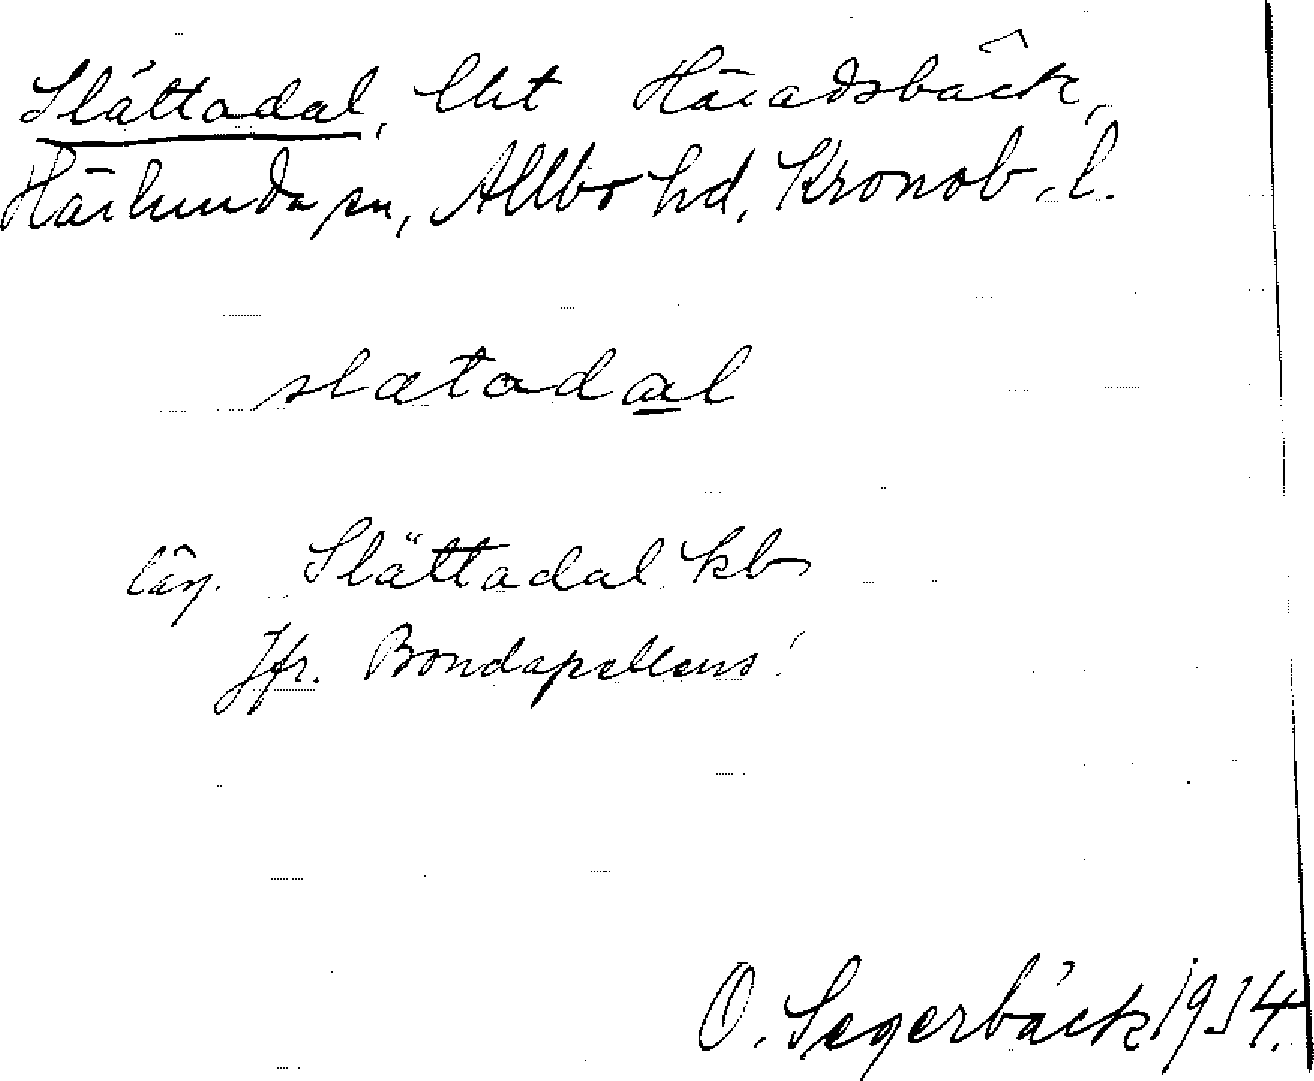 Slättadal, lht Häradsbäck,
Härlunda sn, Allbo hd, Kronob. l.
slætadal
läg. Slättadal kb
Jfr. Bondapallens!
O. Segerbäck 1934.